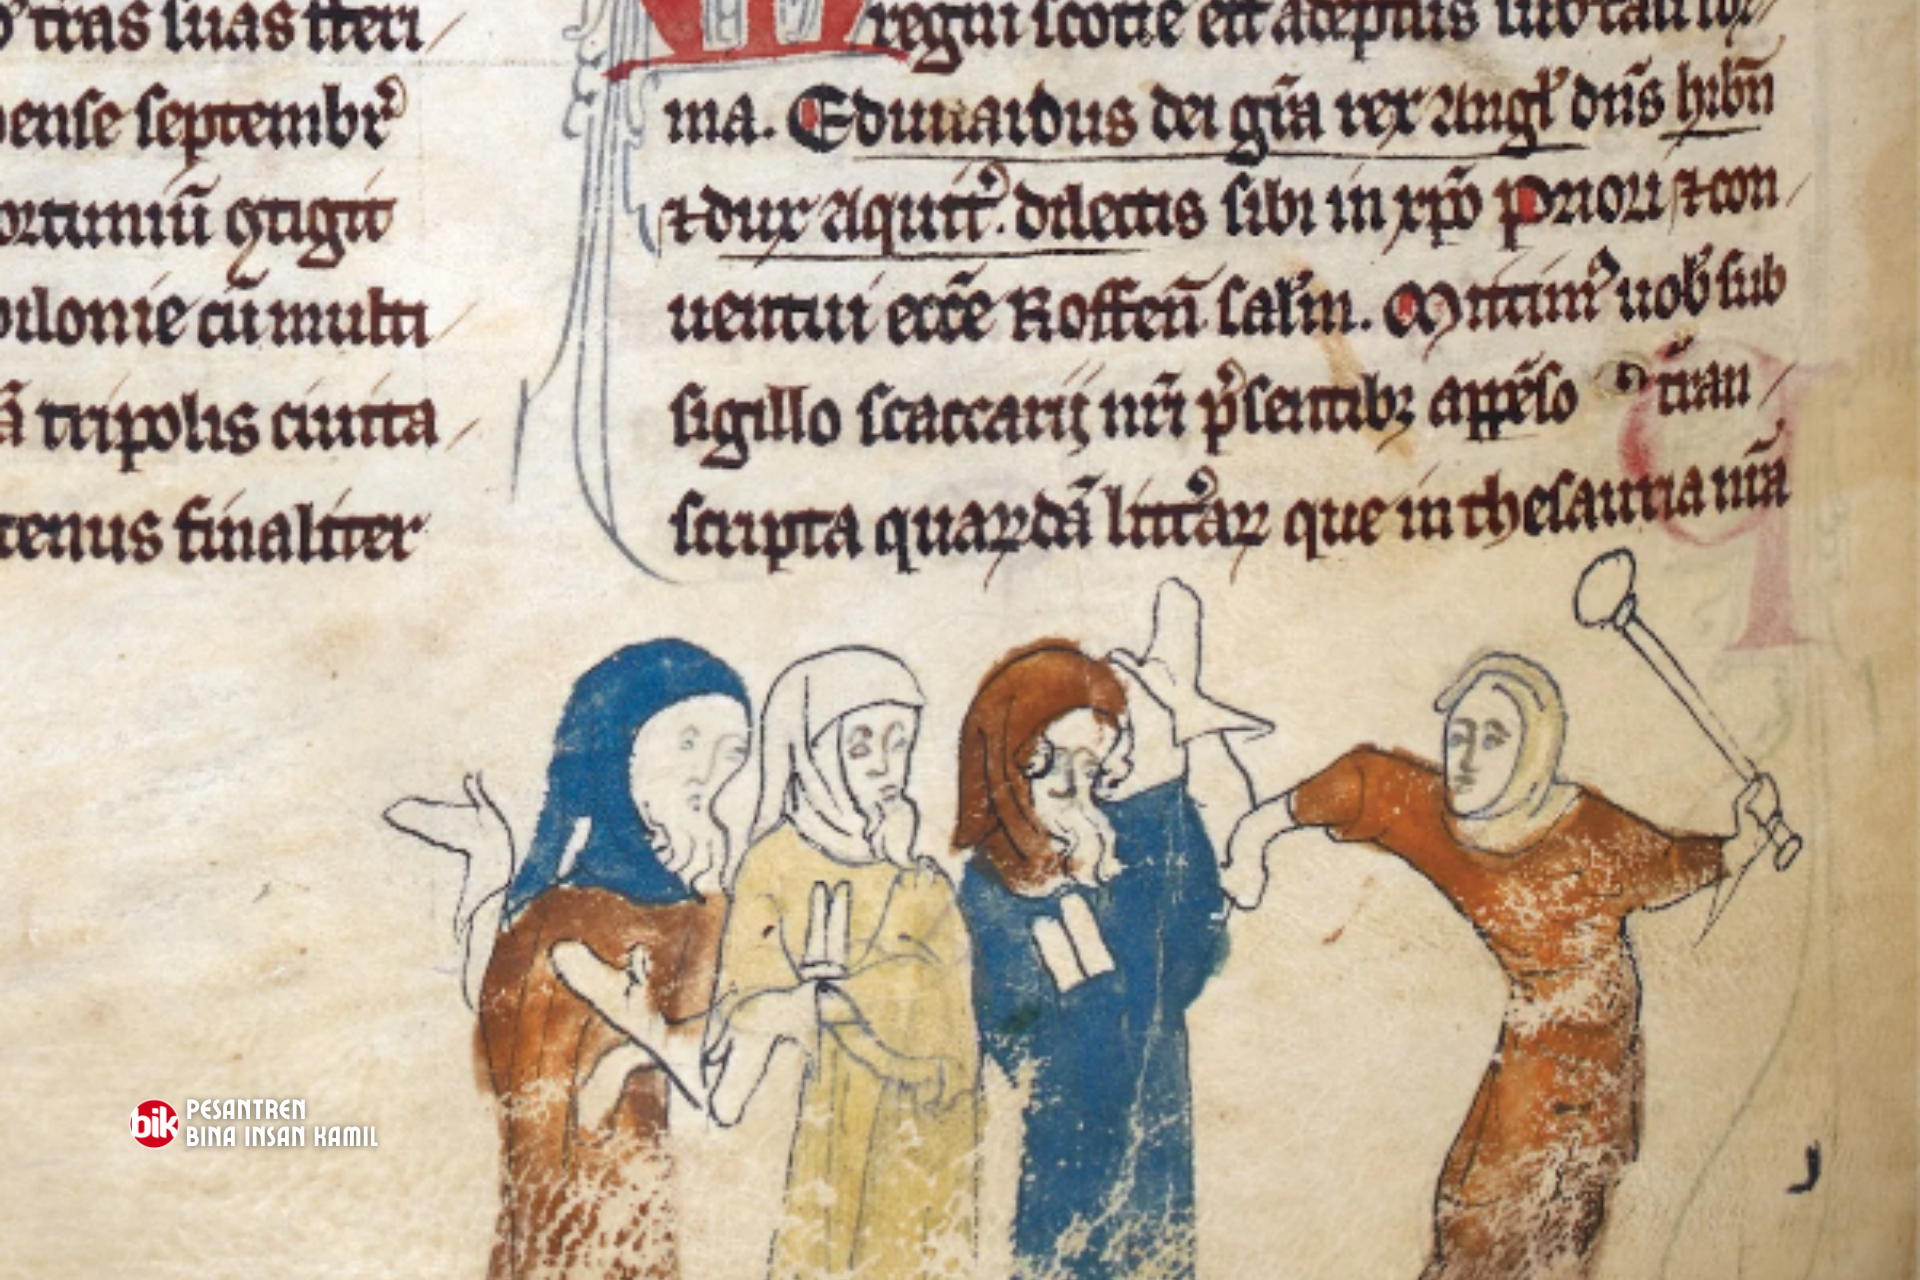 tras suas
ense septembr̉
ortuniū ꝯtigit
bilonie cū multi
ā tripolis ciuita
tenus finaliter
regni scotie est adeptus sub tali for
ma. Edwardus dei gr̄a rex Angl̕ dn̄s hibn̄
⁊ dux Aquit̉. dilectis sibi in xp̄o Priori ⁊ con
uentui ecc̄e Roffen̄ sal̄m. Mittim᷒ uob̕ sub
sigillo scaccarij nr̄i p̉sentibꝫ appēso tran
scripta quaꝝdā litt̉aꝝ que in thesauria nr̄a
bik PESANTREN
BINA INSAN KAMIL